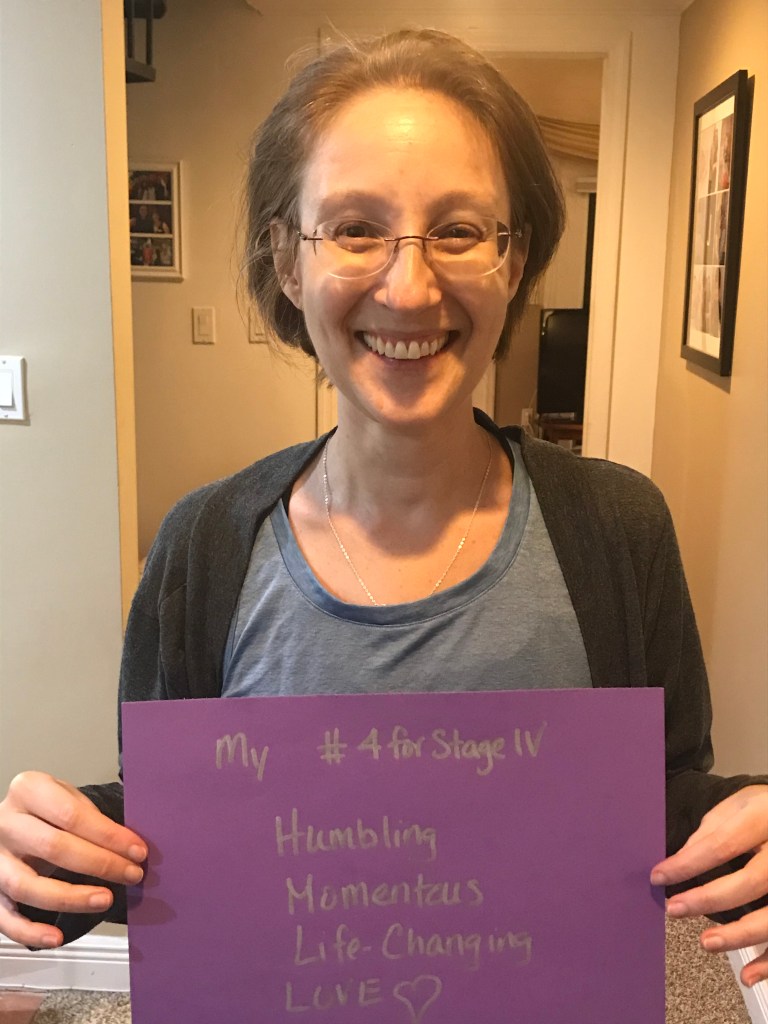 My #4 for Stage IV
Humbling
Momentous
Life-Changing
LOVE ♡